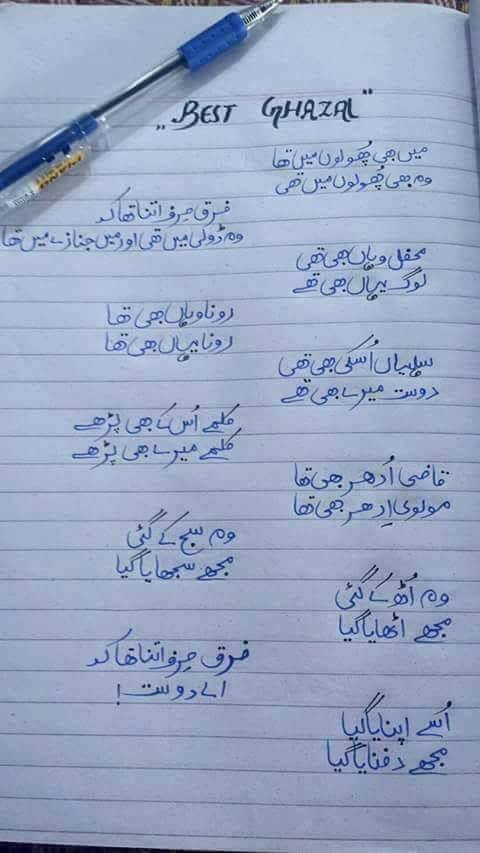 "BEST GHAZAL"
میں بھی پُھولوں میں تھا
وہ بھی پُھولوں میں تھی
فرق صِرف اتنا تھا کہ
وہ ڈولی میں تھی اور میں جنازے میں تھا
محفل وہاں بھی تھی
لوگ یہاں بھی تھے
رونا وہاں بھی تھا
رونا یہاں بھی تھا
سہلیاں اُسکی بھی تھی
دوست میرے بھی تھے
کلمے اُس کے بھی پڑھے
کلمے میرے بھی پڑھے
قاضی اُدھر بھی تھا
مولوی اِدھر بھی تھا
وہ سج کے گئی
مجھے سجھایا گیا
وہ اُٹھ کے گئی
مجھے اٹھایا گیا
فرق صِرف اتنا تھا کہ
اے دوست !
اُسے اپنایا گیا
مجھے دفنایا گیا